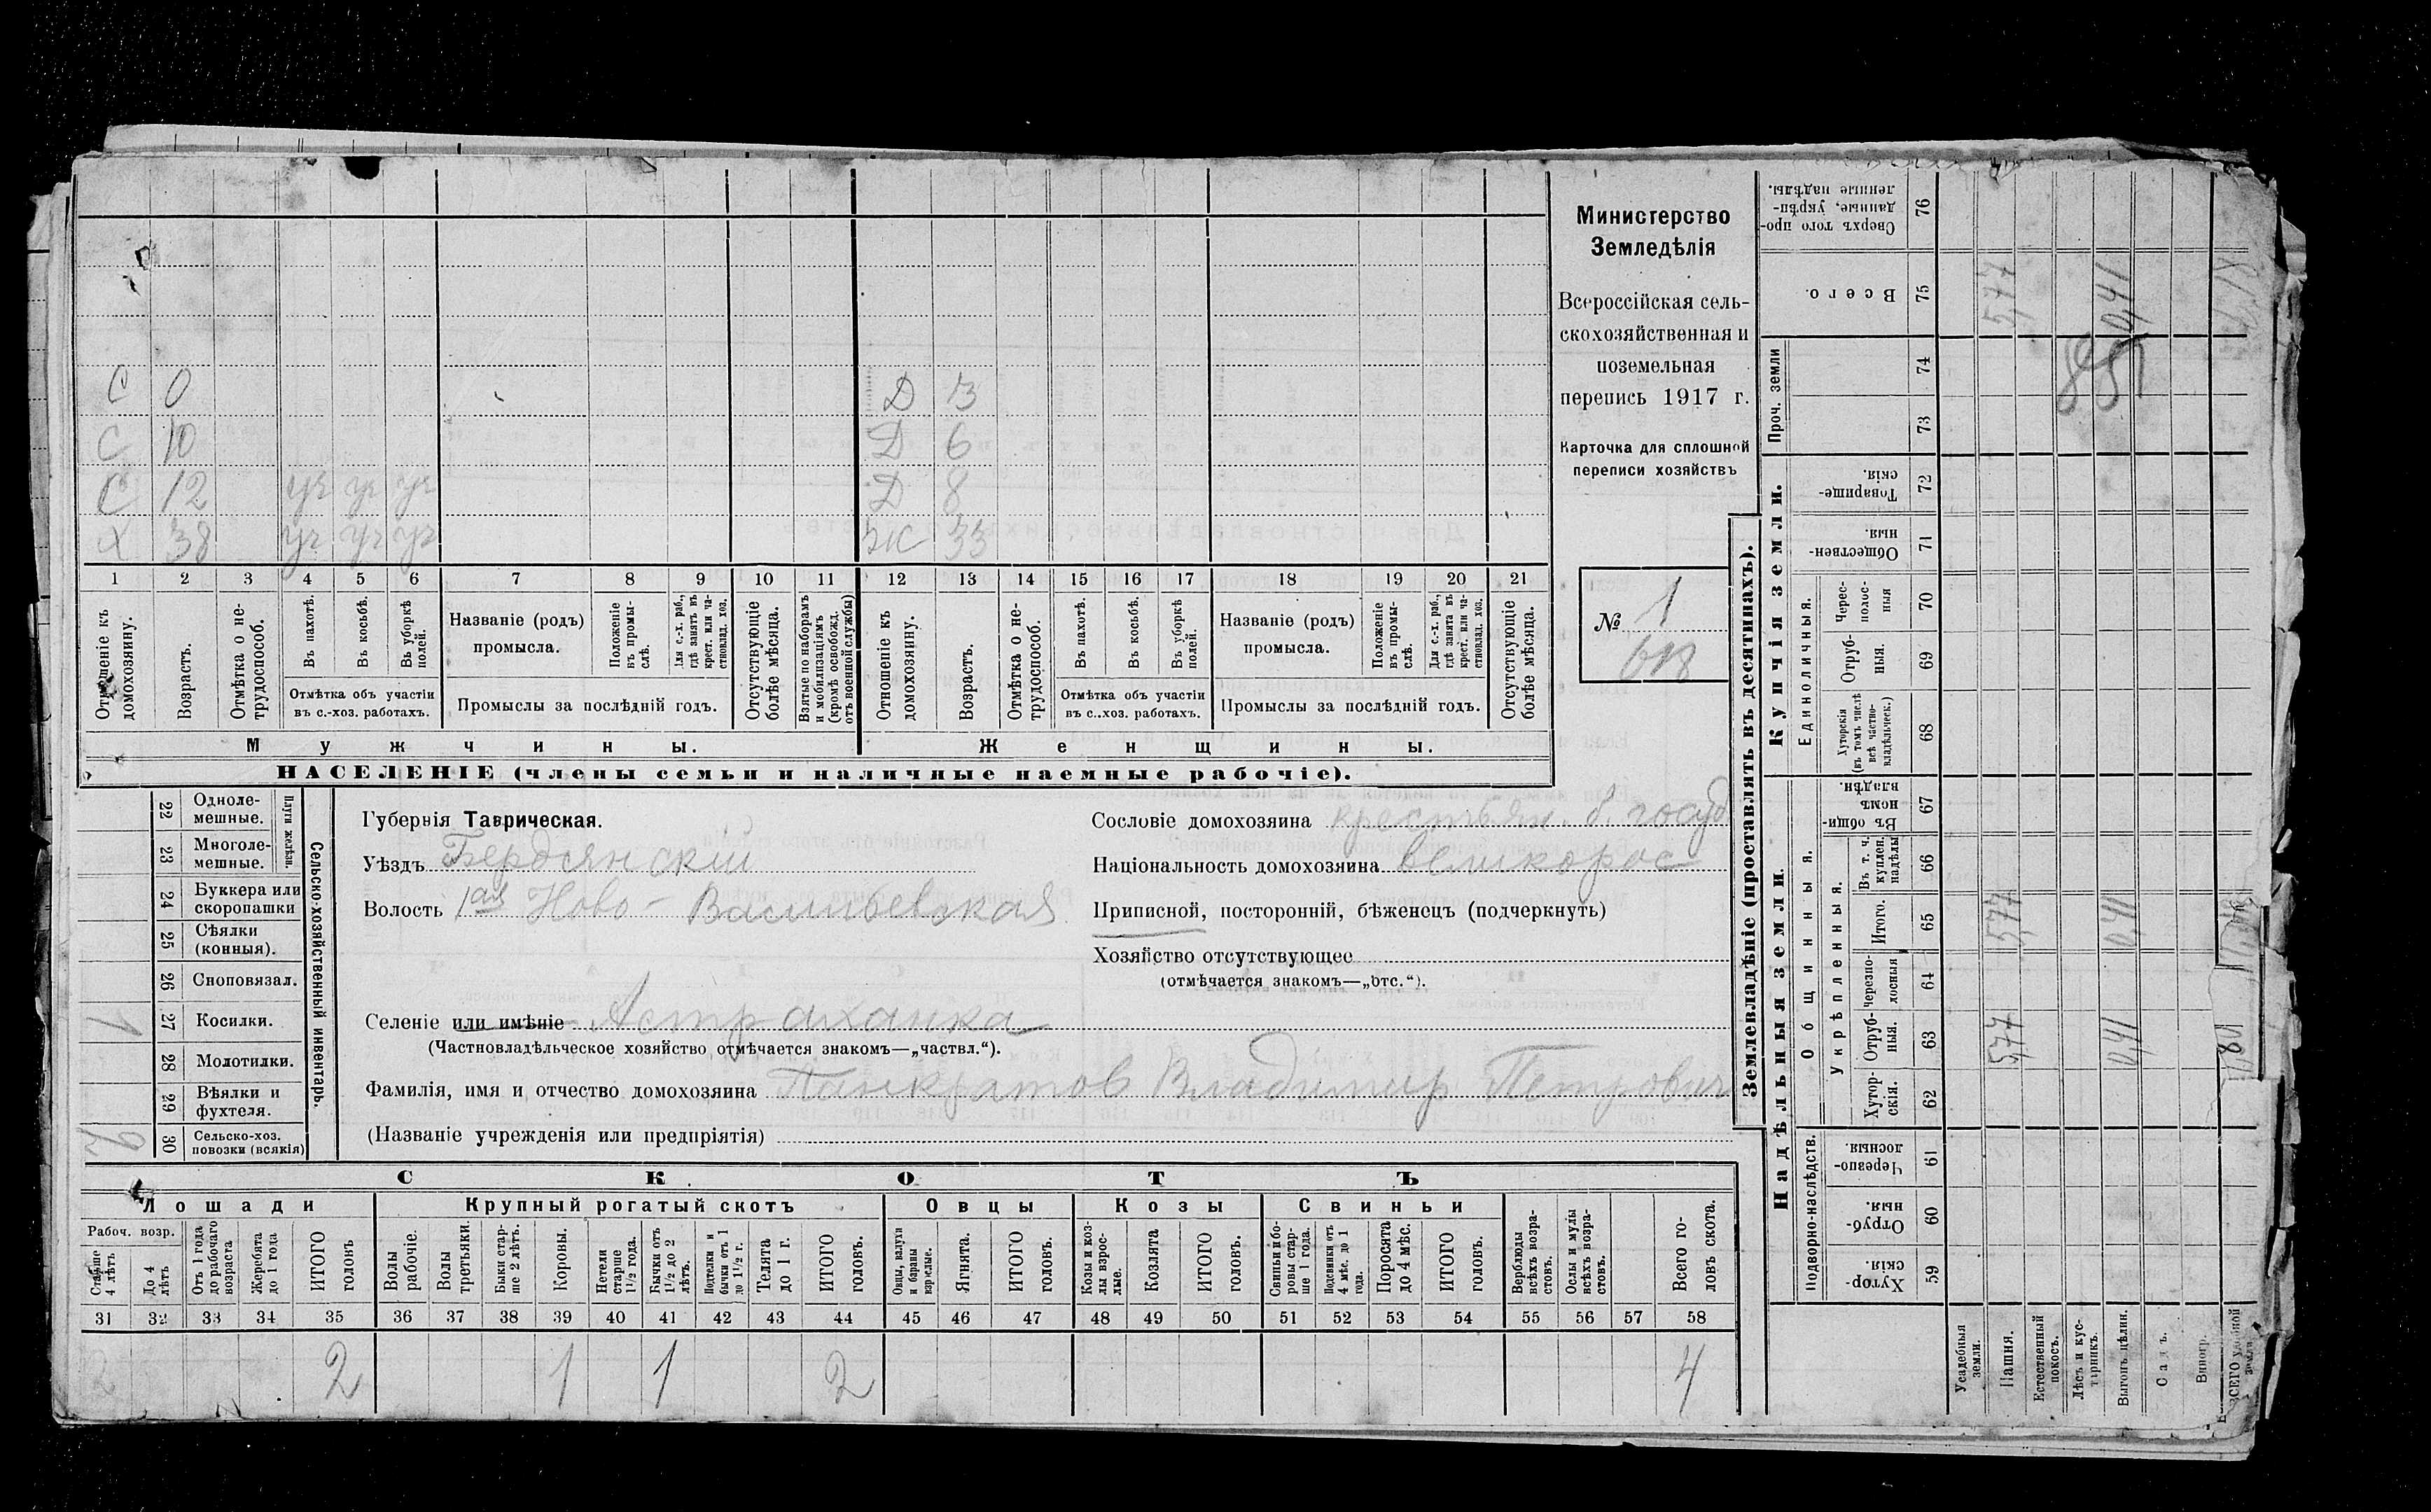 Министерство
Земледѣлія
Всероссійская сель-
скохозяйственная и
поземельная
перепись 1917 г.
Карточка для сплошной
переписи хозяйствъ
№ 1
С 0 Д 13
С 10 Д 6
С 12 уч уч уч Д 8
Х 38 уч уч уч Ж 33
1 2 3 4 5 6 7 8 9 10 11 12 13 14 15 16 17 18 19 20 21
Отношеніе къ домохозяину.
Возрастъ.
Отмѣтка о не-трудоспособ.
Въ пахотѣ.
Въ косьбѣ.
Въ уборкѣ полей.
Отмѣтка объ участіи
въ с.-хоз. работахъ.
Названіе (родъ)
промысла.
Положеніе въ промы-слѣ.
Для с.-х. раб., гдѣ занятъ въ крест. или ча-стновлад. хоз.
Промыслы за послѣдній годъ.
Отсутствующіе болѣе мѣсяца.
Взятые по наборамъ и мобилизаціямъ (кромѣ освобожд. отъ военной службы)
Отношеніе къ домохозяину.
Возрастъ.
Отмѣтка о не-трудоспособ.
Въ пахотѣ.
Въ косьбѣ.
Въ уборкѣ полей.
Отмѣтка объ участіи
въ с.-хоз. работахъ.
Названіе (родъ)
промысла.
Положеніе въ промы-слѣ.
Для с.-х. раб., гдѣ занята въ крест. или ча-стновлад. хоз.
Промыслы за послѣдній годъ.
Отсутствующіе болѣе мѣсяца.
Мужчины.
Женщины.
НАСЕЛЕНІЕ (члены семьи и наличные наемные рабочіе).
Сельско-хозяйственный инвентарь.
Плуги желѣзн.
22 Одноле-мешные.
23 Многоле-мешные.
24 Буккера или скоропашки
25 Сѣялки (конныя).
26 Сноповязал.
27 Косилки. 1
28 Молотилки.
29 Вѣялки и фухтеля.
30 Сельско-хоз. повозки (всякія)
Губернія Таврическая.
Уѣздъ Бердянскій
Волость 1ая Ново-Васильевская
Селеніе или имѣніе Астраханка
(Частновладѣльческое хозяйство отмѣчается знакомъ—„частвл.“).
Фамилія, имя и отчество домохозяина Панкратов Владимир Петрович
(Названіе учрежденія или предпріятія)
Сословіе домохозяина крестьян. б. госуд
Національность домохозяина великорос
Приписной, посторонній, бѣженецъ (подчеркнуть)
Хозяйство отсутствующее
(отмѣчается знакомъ—„отс.“).
СКОТЪ
Лошади
Крупный рогатый скотъ
Овцы
Козы
Свиньи
Рабоч. возр.
Старше 4 лѣтъ
До 4 лѣтъ
Отъ 1 года до рабочаго возраста
Жеребята до 1 года
ИТОГО головъ
Волы рабочіе.
Волы третьяки.
Быки стар-ше 2 лѣтъ.
Коровы.
Нетели старше 1½ года.
Бычки отъ 1½ до 2 лѣтъ.
Подтелки и бычки отъ 1 до 1½ г.
Телята до 1 г.
ИТОГО головъ.
Овцы, валухи и бараны взрослые.
Ягнята.
ИТОГО головъ.
Козы и коз-лы взрос-лые.
Козлята
ИТОГО головъ.
Свиньи и бо-ровы стар-ше 1 года.
Подсвинки отъ 4 мѣс. до 1 года.
Поросята до 4 мѣс.
ИТОГО головъ.
Верблюды всѣхъ возра-стовъ.
Ослы и мулы всѣхъ возра-стовъ.
Всего го-ловъ скота.
31 32 33 34 35 36 37 38 39 40 41 42 43 44 45 46 47 48 49 50 51 52 53 54 55 56 57 58
2 2 1 1 2 4
Землевладѣніе (проставлять въ десятинахъ).
Надѣльныя земли.
Купчія земли.
Проч. земли
Подворно-наслѣдств.
Общинныя.
Укрѣпленныя.
Единоличныя.
Хутор-скія. 59
Отруб-ныя. 60
Черезпо-лосныя 61
Хутор-скія. 62
Отруб-ныя. 63
Черезпо-лосныя 64
Итого. 65
Въ т. ч. куплен. надѣлы 66
Въ общин-номъ владѣн. 67
Хуторскія (въ томъ числѣ всѣ частно-владѣльческ.) 68
Отруб-ныя. 69
Черес-полос-ныя 70
Обществен-ныя. 71
Товарище-скія. 72
73
74
Всего. 75
Сверхъ того про-данные, укрѣп-ленные надѣлы. 76
Усадебныя земли.
Пашня. 5,77 5,77 5,77
Естественный покосъ.
Лѣсъ и кус-тарникъ.
Выгонъ цѣлин. 0,41 0,41 0,41
Садъ.
Виногр.
ВСЕГО удобной земли
851